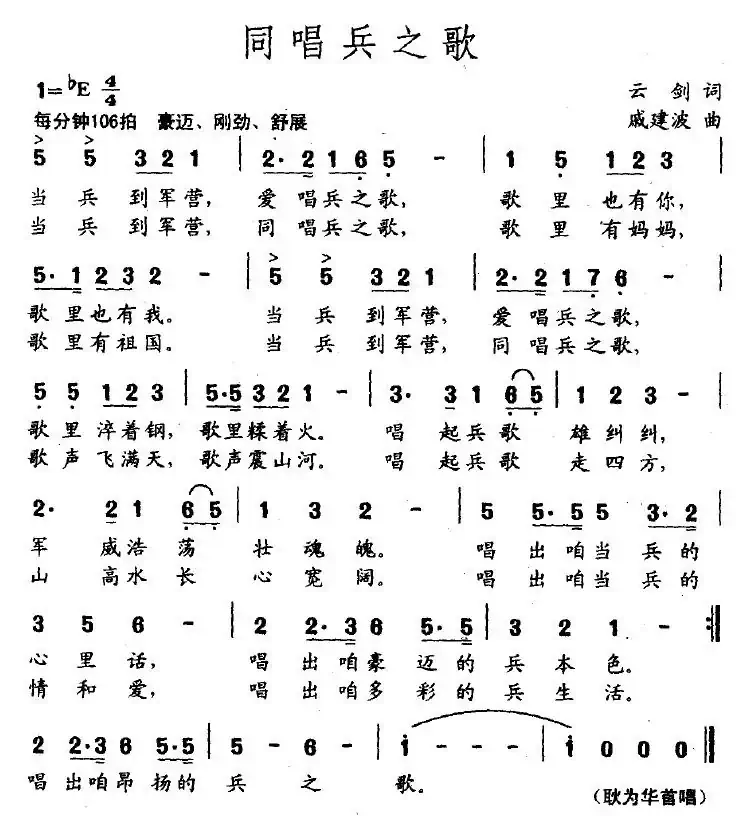 同唱兵之歌
1=♭E 4/4
云剑词
每分钟106拍 豪迈、刚劲、舒展
戚建波 曲
5 5 3 2 1 | 2· 2 1 6 5 - | 1 5 1 2 3 |
当兵到军营, 爱唱兵之歌, 歌里也有你,
当兵到军营, 同唱兵之歌, 歌里有妈妈,
5· 1 2 3 2 - | 5 5 3 2 1 | 2· 2 1 7 6 - |
歌里也有我。 当兵到军营, 爱唱兵之歌,
歌里有祖国。 当兵到军营, 同唱兵之歌,
5 5 1 2 3 | 5·5 3 2 1 - | 3· 3 1 6 5 | 1 2 3 - |
歌里淬着钢, 歌里糅着火。 唱起兵歌 雄纠纠,
歌声飞满天, 歌声震山河。 唱起兵歌 走四方,
2· 2 1 6 5 | 1 3 2 - | 5 5·5 5 3·2 |
军威浩荡 壮魂魄。 唱出咱当兵的
山高水长 心宽阔。 唱出咱当兵的
3 5 6 - | 2 2·3 6 5·5 | 3 2 1 - :||
心里话, 唱出咱豪迈的兵本色。
情和爱, 唱出咱多彩的兵生活。
2 2·3 6 5·5 | 5 - 6 - | i - - - | i 0 0 0 ||
唱出咱昂扬的兵之歌。
(耿为华首唱)